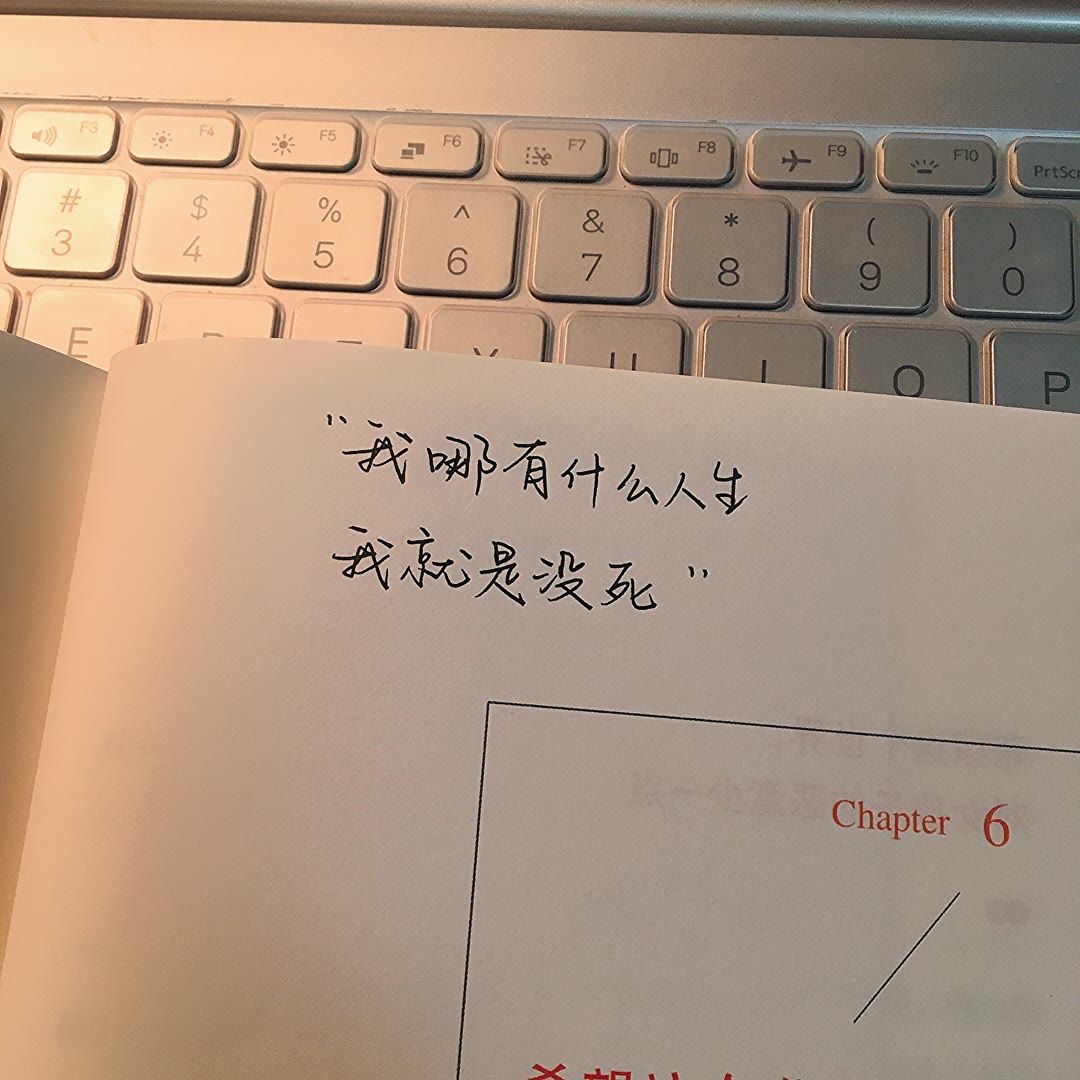 F3 F4 F5 F6 F7 F8 F9 F10 PrtSc
# $ % ^ & * ( )
3 4 5 6 7 8 9 0
E U I O P
“我哪有什么人生
我就是没死”
Chapter 6